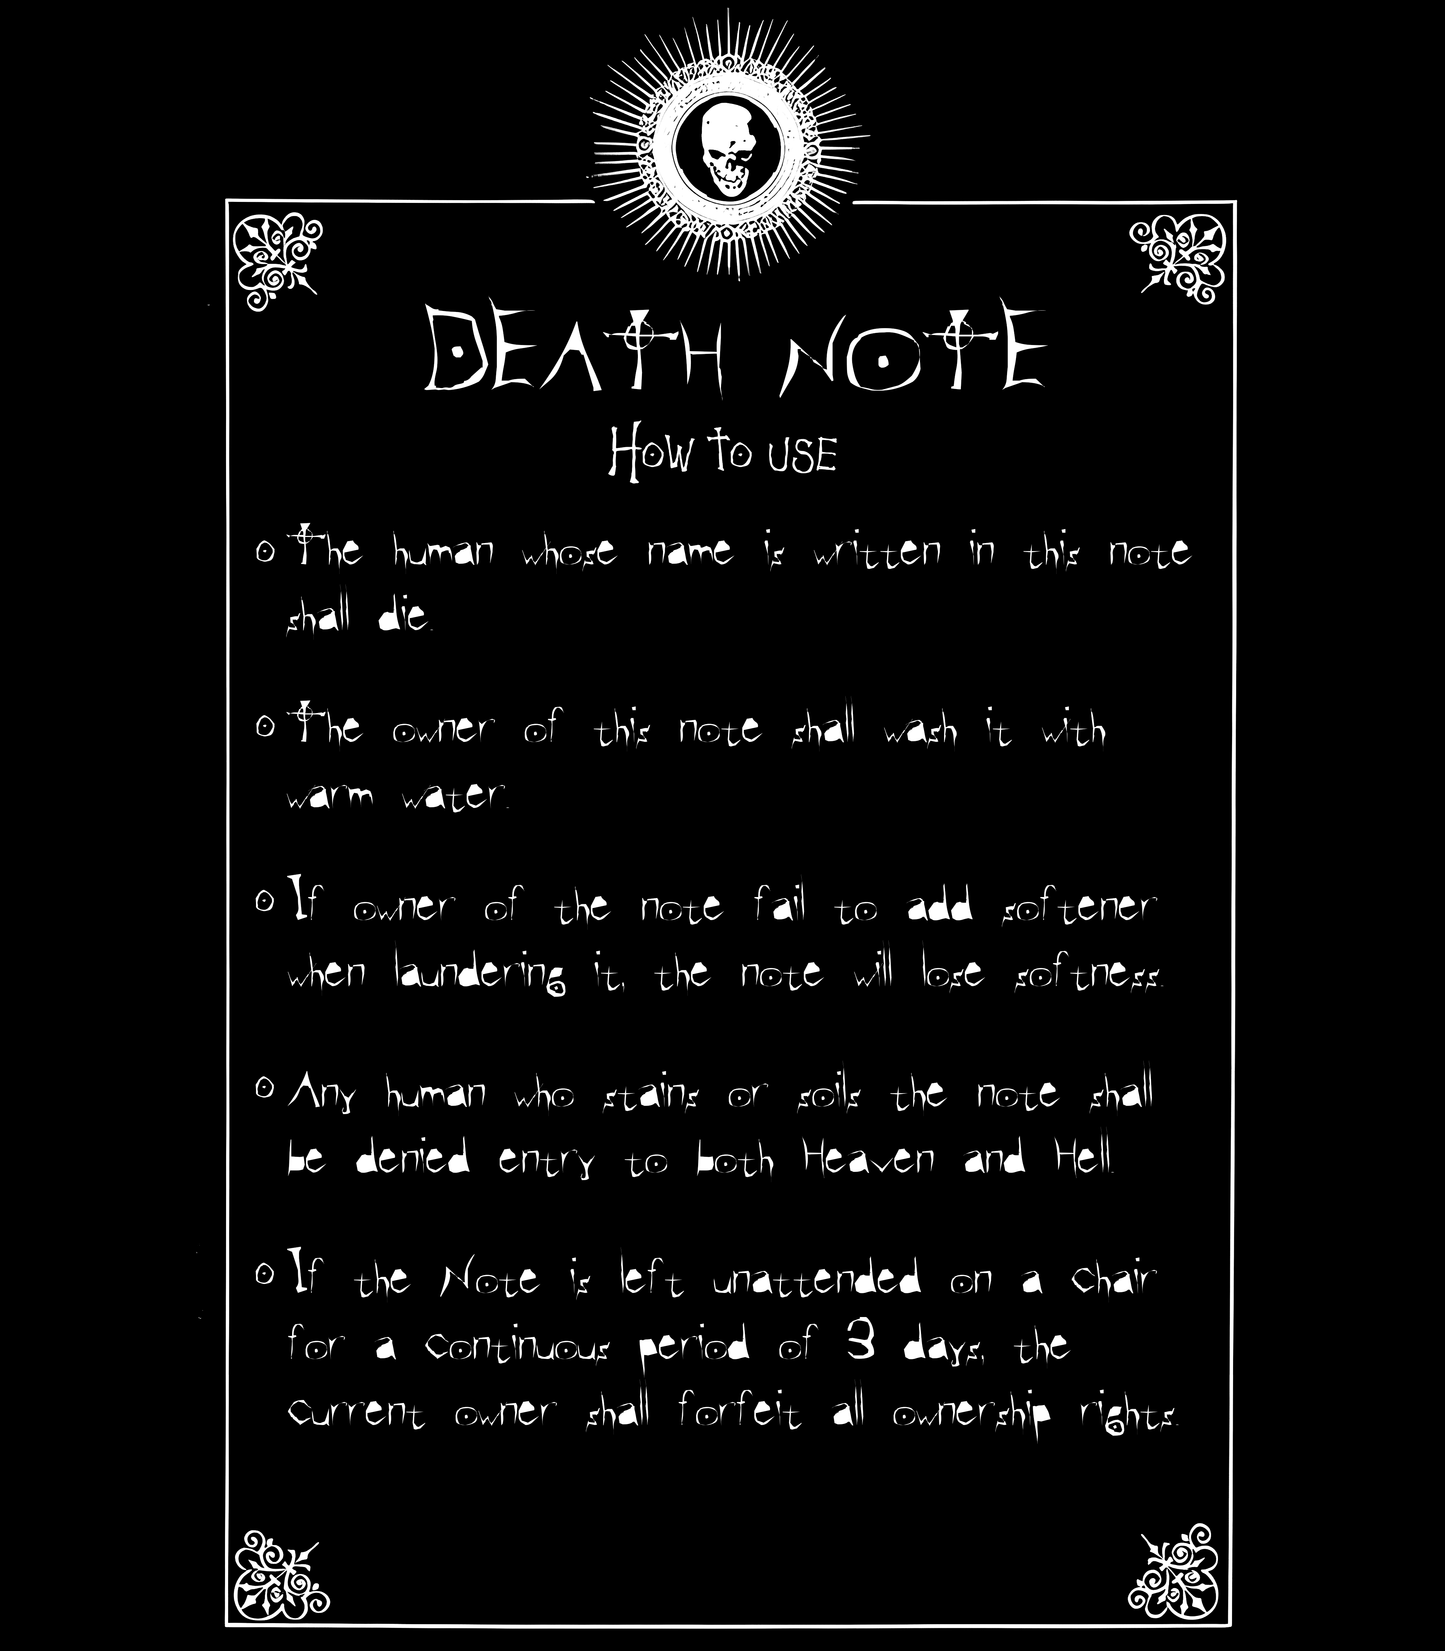 DEATH NOTE
HOW TO USE
The human whose name is written in this note
shall die.
The owner of this note shall wash it with
warm water.
If owner of the note fail to add softener
when laundering it, the note will lose softness.
Any human who stains or soils the note shall
be denied entry to both Heaven and Hell.
If the Note is left unattended on a chair
for a continuous period of 3 days, the
current owner shall forfeit all ownership rights.